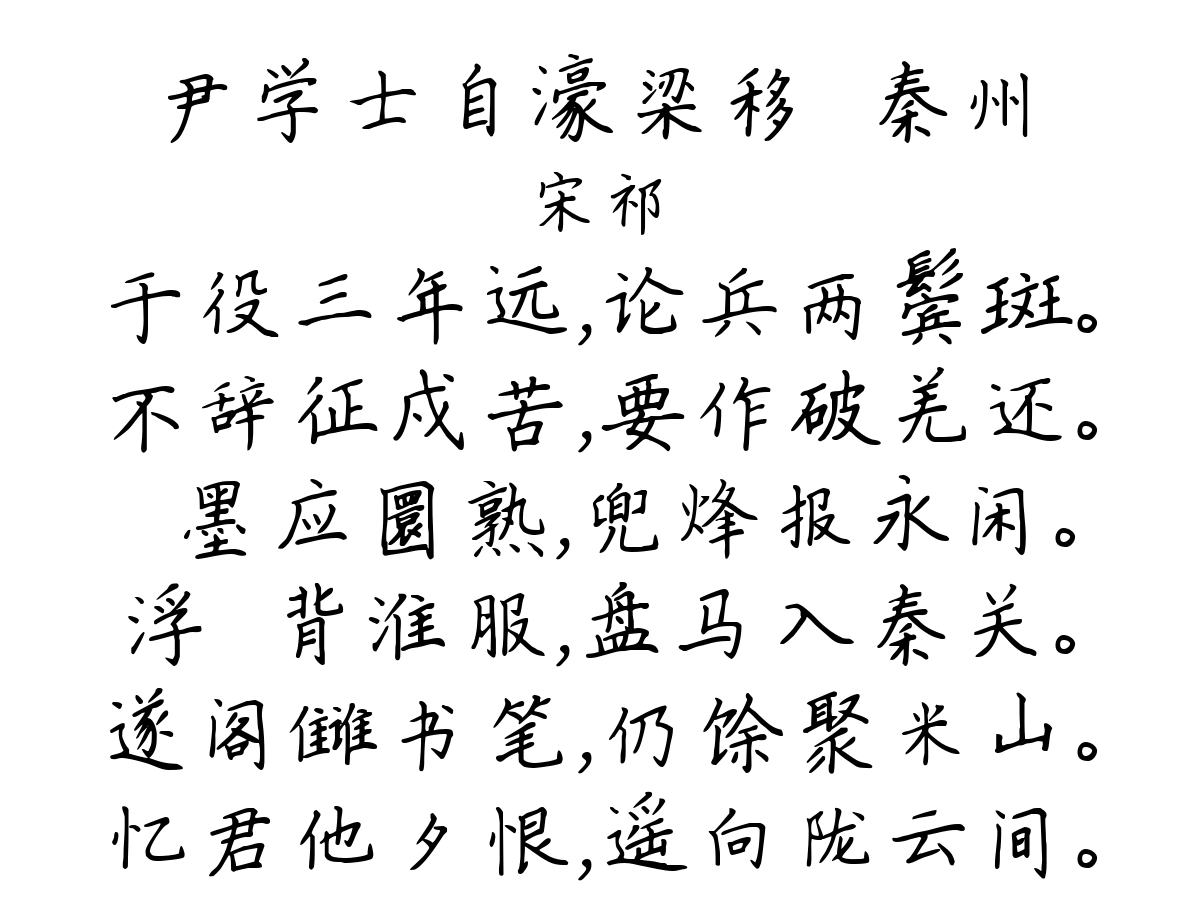 尹学士自濠梁移 秦州
宋祁
于役三年远,论兵两鬓斑。
不辞征戍苦,要作破羌还。
墨应圜熟,兜烽报永闲。
浮 背淮服,盘马入秦关。
遂阁雠书笔,仍馀聚米山。
忆君他夕恨,遥向陇云间。